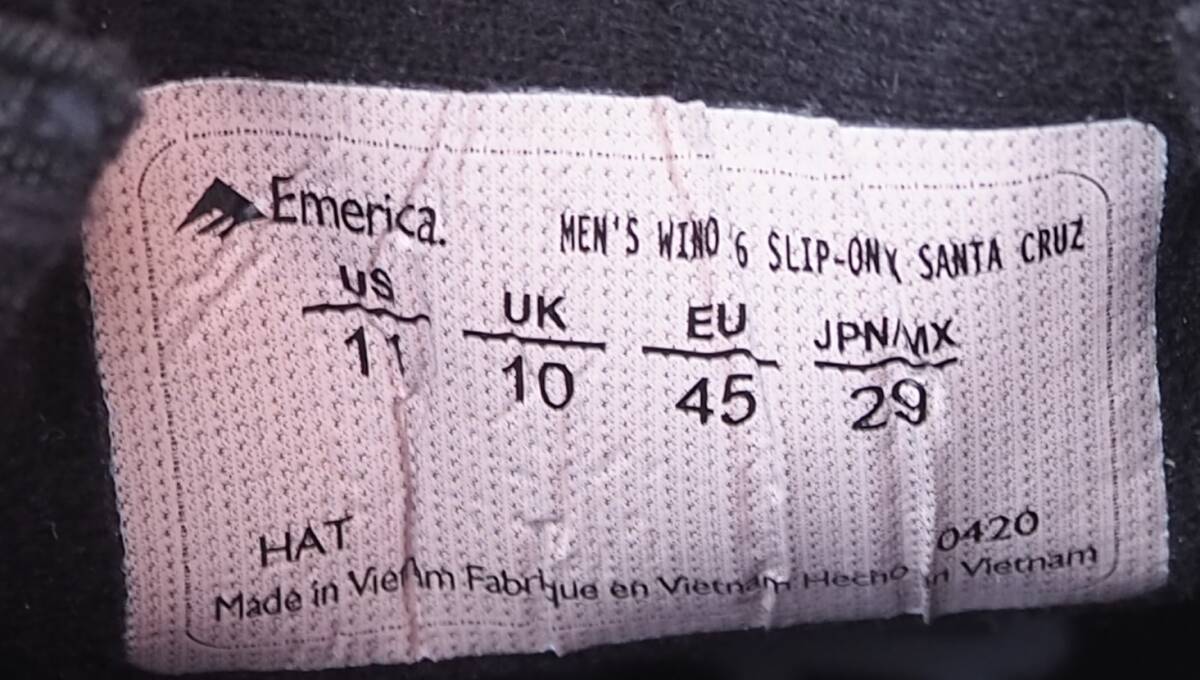 Emerica.
MEN'S WINO 6 SLIP-ONX SANTA CRUZ
US UK EU JPN/MX
11 10 45 29
HAT 0420
Made in Vietnam Fabrique en Vietnam Hecho in Vietnam